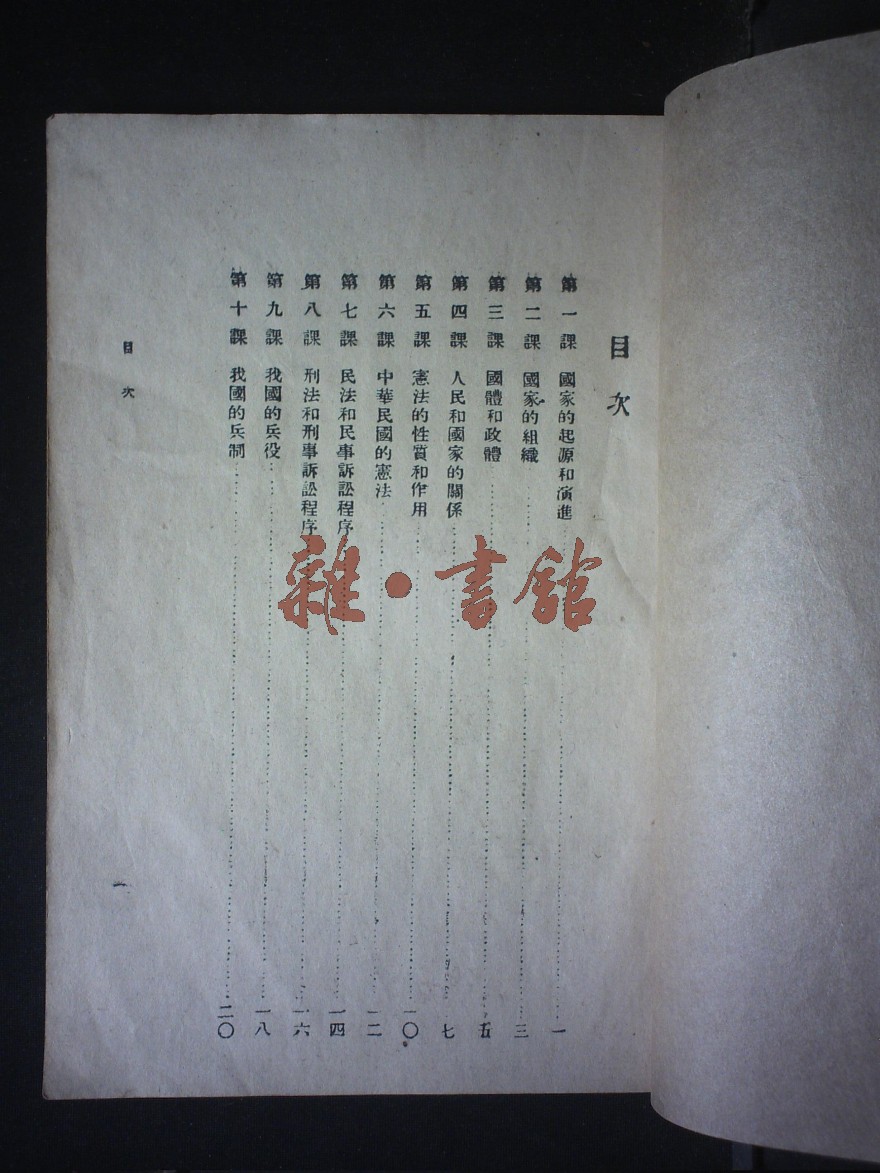 目次
第一課 國家的起源和演進……一
第二課 國家的組織……三
第三課 國體和政體……五
第四課 人民和國家的關係……七
第五課 憲法的性質和作用……一〇
第六課 中華民國的憲法……一二
第七課 民法和民事訴訟程序……一四
第八課 刑法和刑事訴訟程序……一六
第九課 我國的兵役……一八
第十課 我國的兵制……二〇
目次
一
雜·書館